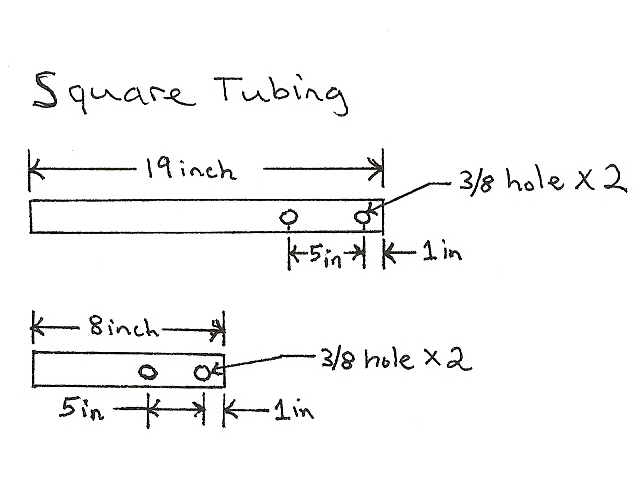 Square Tubing
19 inch
3/8 hole X 2
5in
1 in
8 inch
3/8 hole X 2
5in
1in